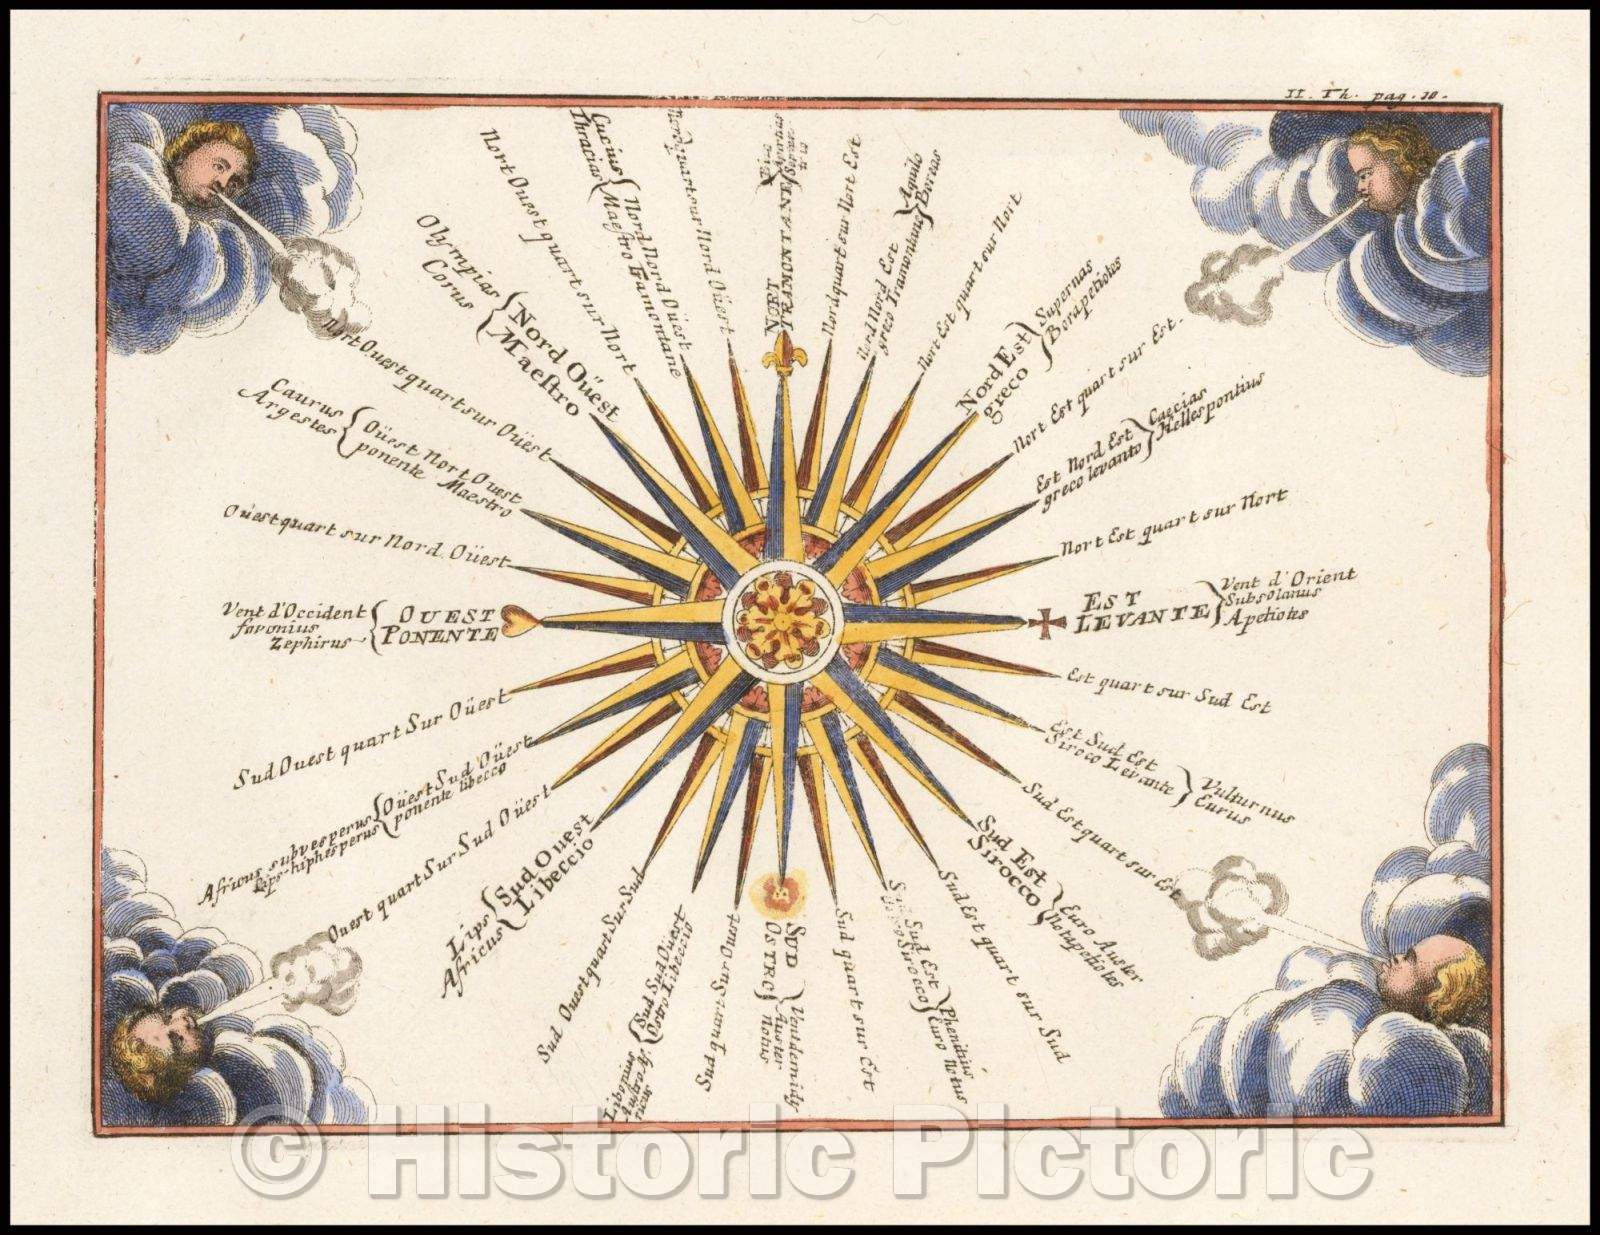 II. Th. pag. 10.
NORT
TRAMONTANE
Nord quart sur Nort Est
Nord Nord Est
greco Tramontane
Aquilo
Boreas
Nort Est quart sur Nort
Nord Est
greco
Supernas
Borapeliotes
Nort Est quart sur Est.
Est Nord Est
greco levanto
Caecias
Hellespontius
Nort Est quart sur Nort
EST
LEVANTE
Vent d'Orient
Subsolanus
Apeliotes
Est quart sur Sud Est
Est Sud Est
Siroco Levante
Vulturnus
Eurus
Sud Est quart sur Est
Sud Est
Sirocco
Euro Auster
Notapeliotes
Sud Est quart sur Sud
Sud Sud Est
Siroco
Phenitius
Euro Notus
Sud quart sur Est
SUD
OSTRO
Vent de midy
Auster
Notus
Sud quart Sur Ouest
Sud Sud Ouest
Ostro Libeccio
Libonius
Austro Af.
ricus
Sud Ouest quart Sur Sud
Sud Ouest
Libeccio
Lips
Africus
Ouest quart Sur Sud Oüest
Oüest Sud Oüest
ponente libecco
Africus subvesperus
Lips-hiphesperus
Sud Ouest quart Sur Oüest
OUEST
PONENTE
Vent d'Occident
favonius
Zephirus
Oüest quart sur Nord Oüest
Oüest Nort Ouest
ponente Maestro
Caurus
Argestes
Nort Ouest quart sur Oüest
Nord Oüest
Maestro
Olympias
Corus
Nort Ouest quart sur Nort
Nord Nord Oüest
Maestro Tramontane
Cucius
Thracias
Nord quart sur Nord Oüest
© Historic Pictoric